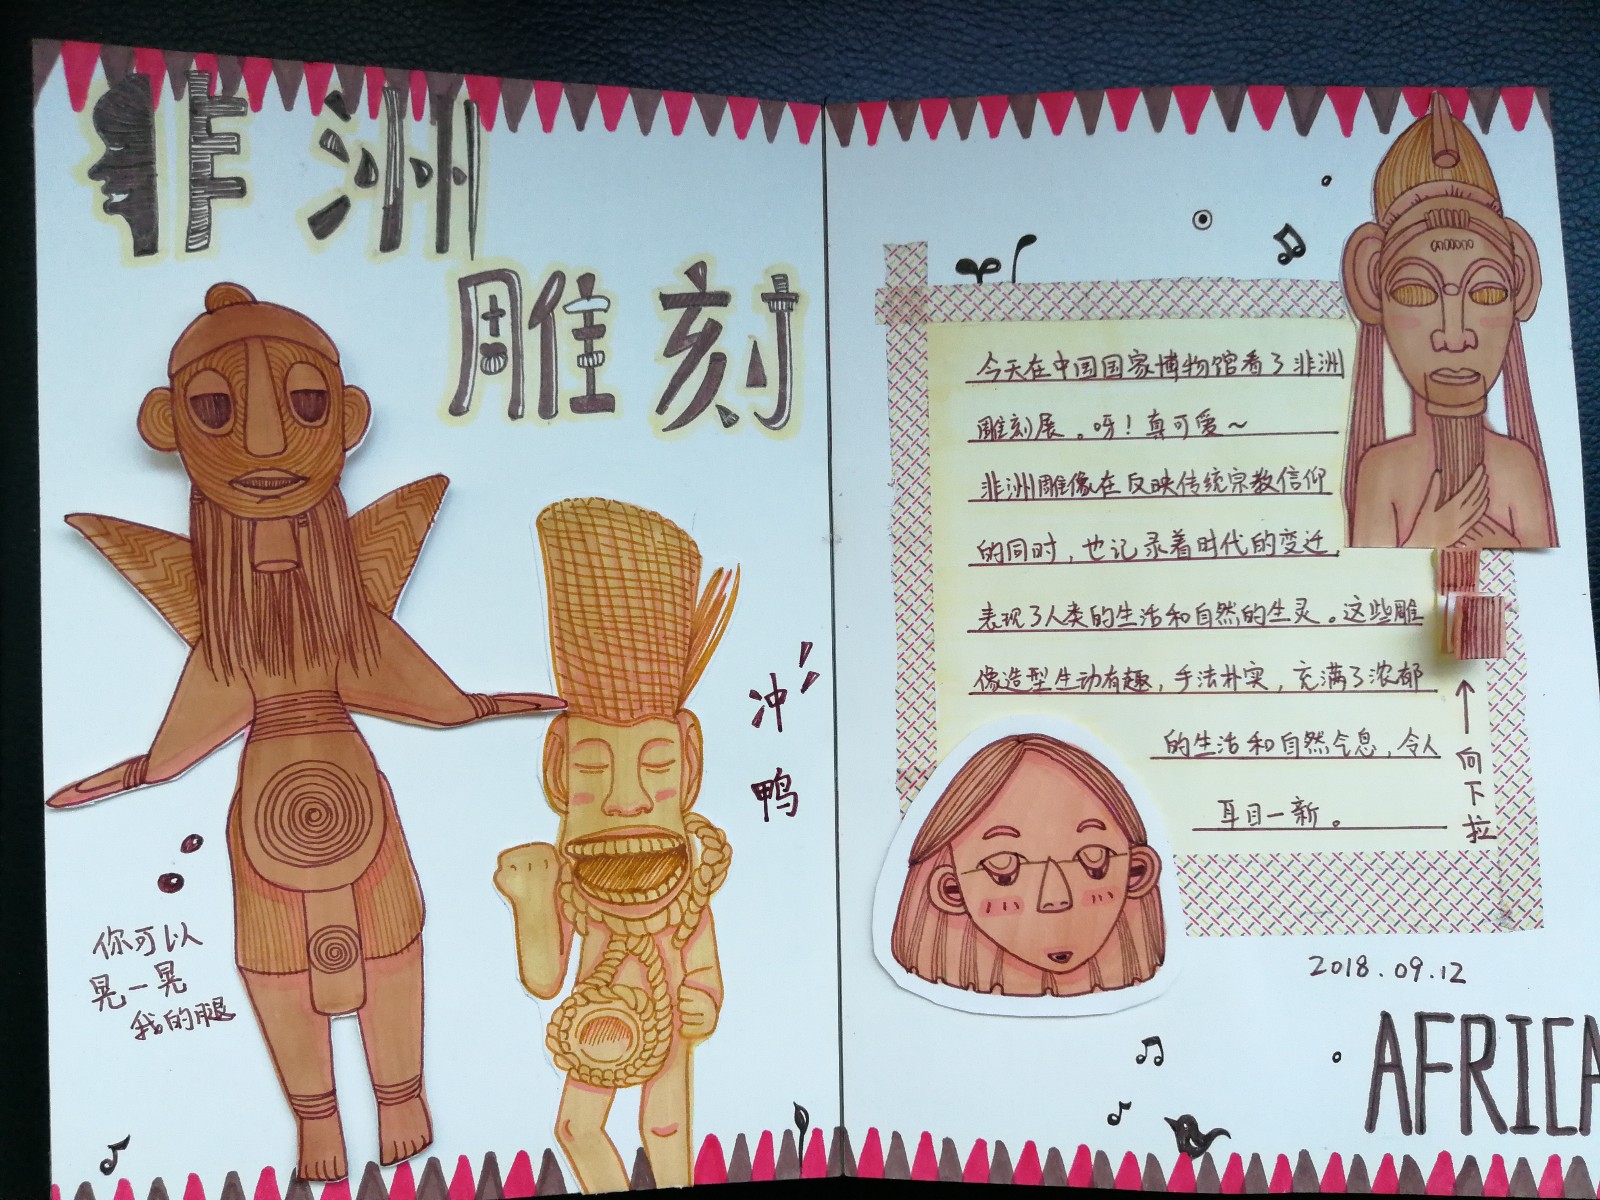 非洲
雕刻
冲
鸭
你可以
晃一晃
我的腿
今天在中国国家博物馆看了非洲
雕刻展。呀！真可爱~
非洲雕像在反映传统宗教信仰
的同时，也记录着时代的变迁，
表现了人类的生活和自然的生灵。这些雕
像造型生动有趣，手法朴实，充满了浓郁
的生活和自然气息，令人
耳目一新。
↑
向
下
拉
2018.09.12
AFRICA